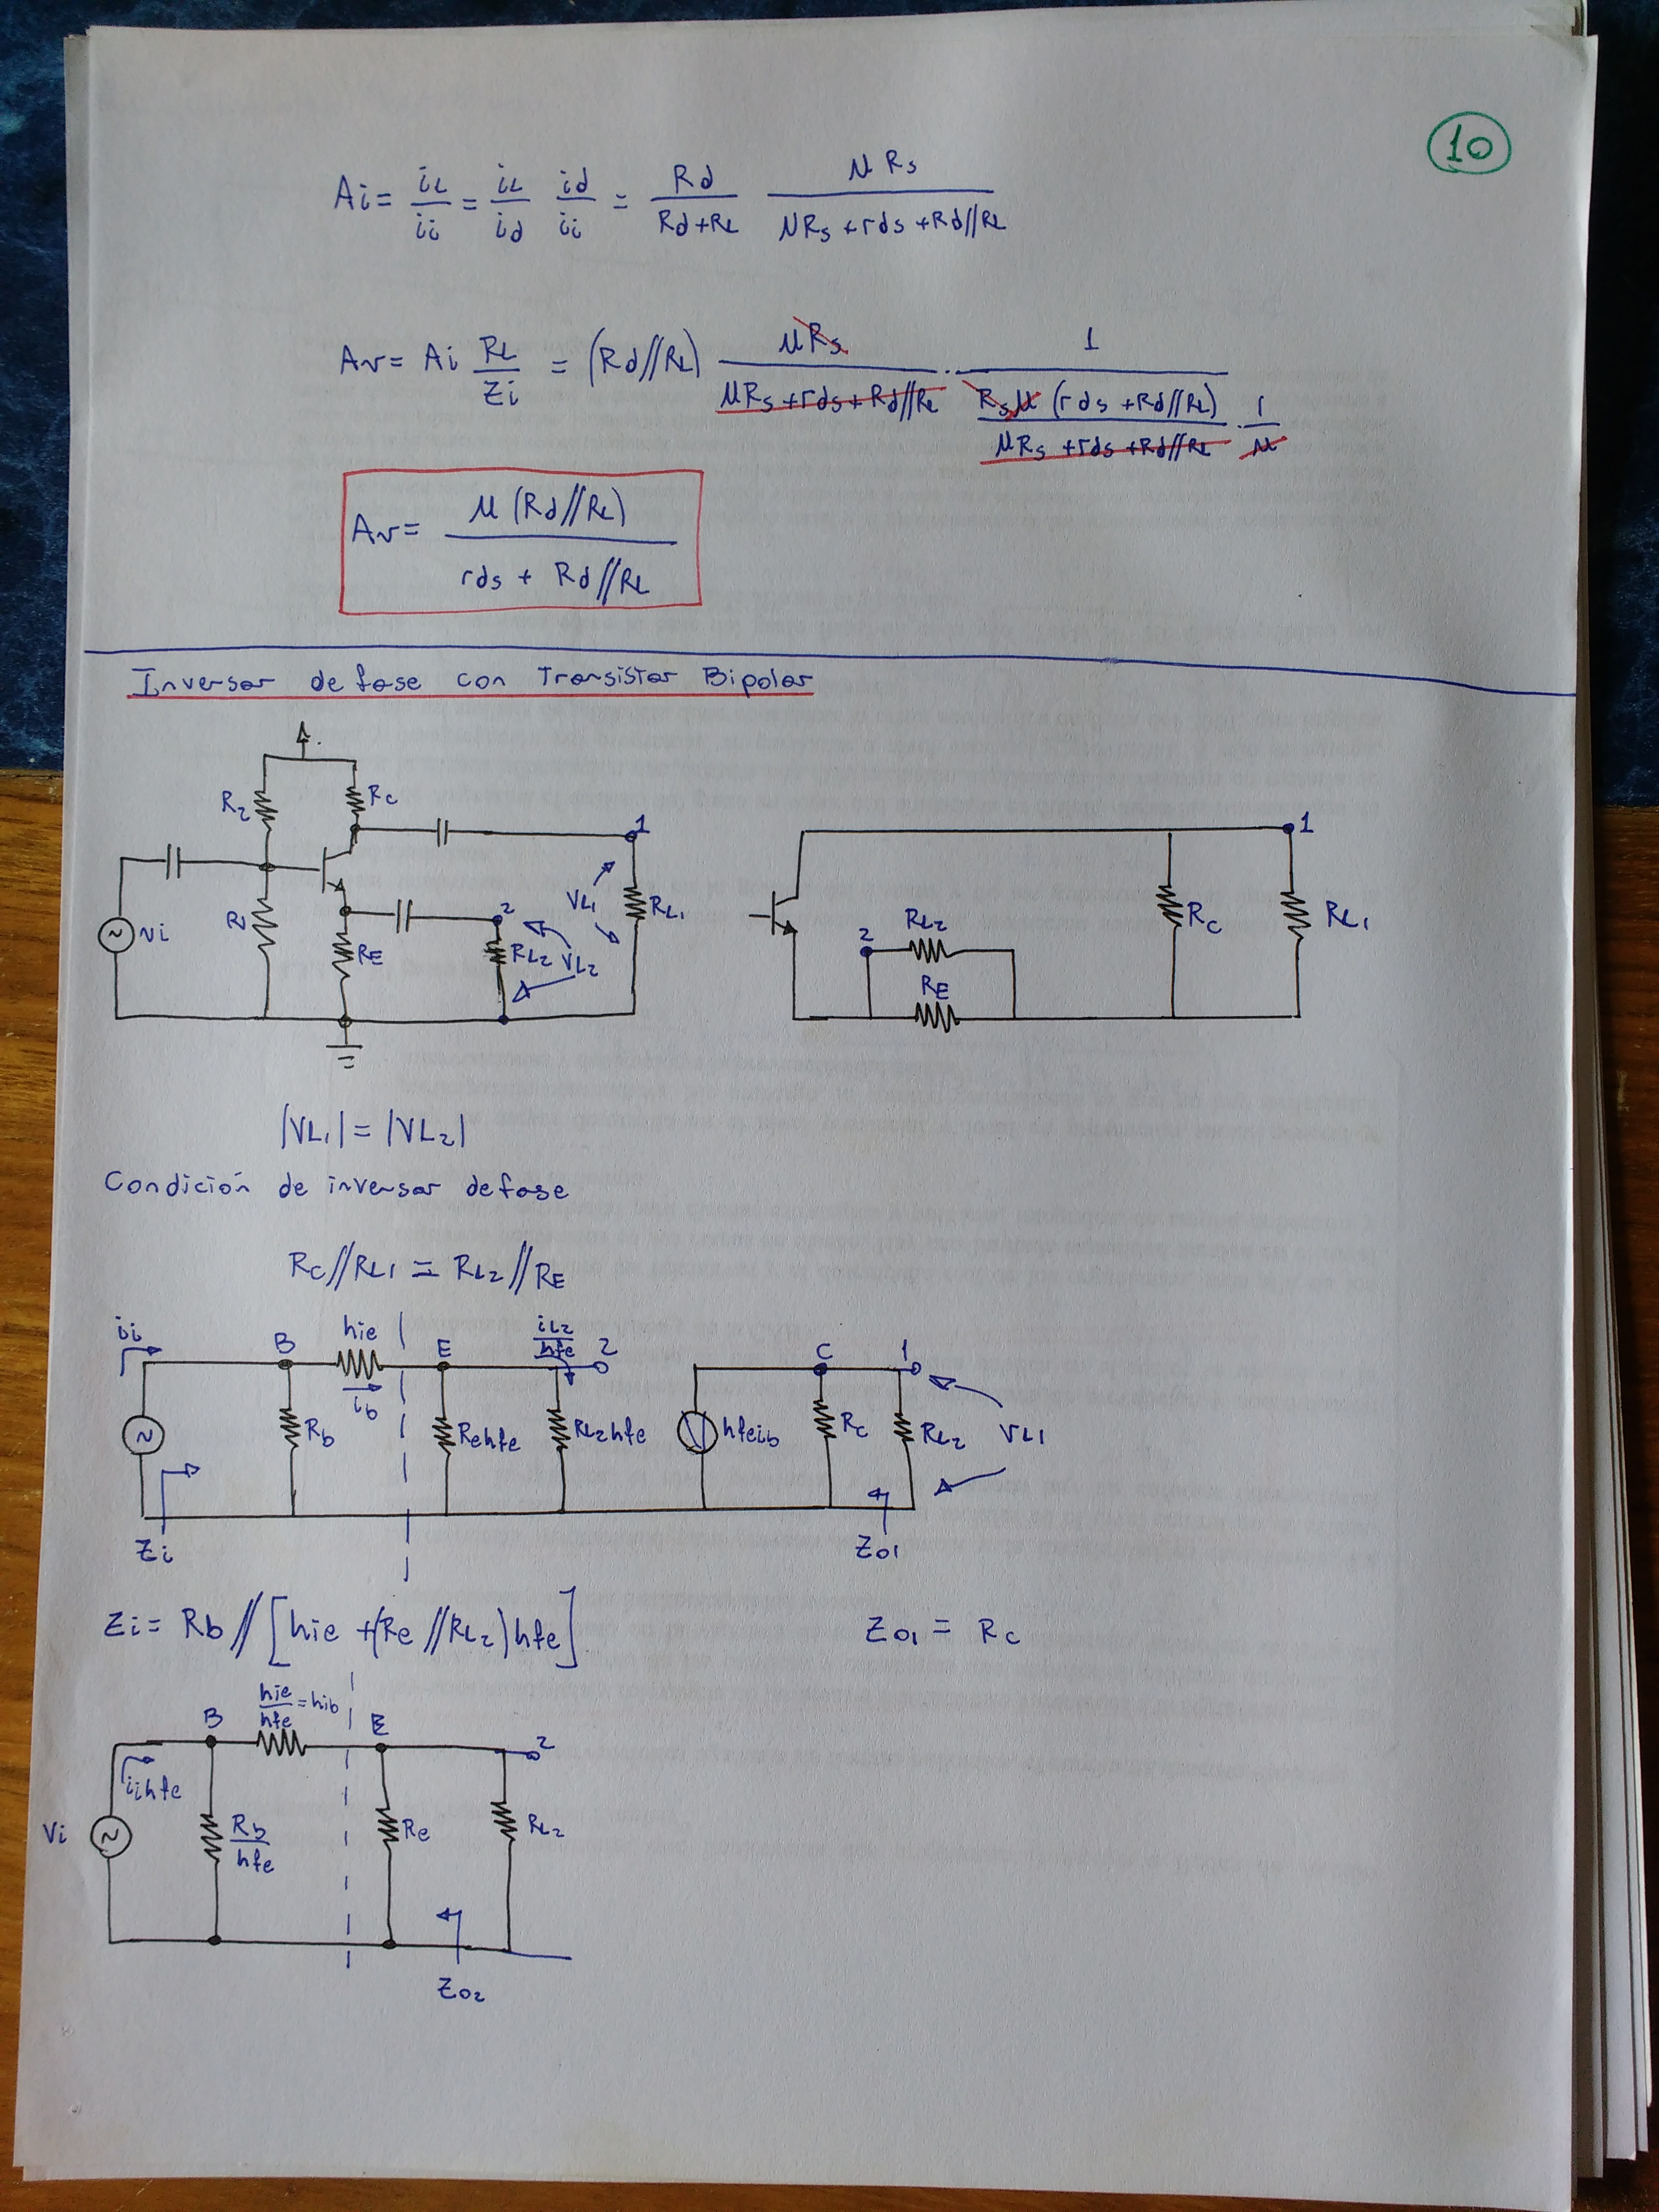 10
Ai = iL/ii = iL/id id/ii = Rd/(Rd+RL) μRs/(μRs+rds+Rd//RL)
Av = Ai RL/Zi = (Rd//RL) μRs/(μRs+rds+Rd//RL) · 1/(Rsμ(rds+Rd//RL)/(μRs+rds+Rd//RL) · 1/μ)
Av = μ(Rd//RL)/(rds + Rd//RL)
Inversor de fase con Transistor Bipolar
R2 RC 1
vi R1 RE 2 RL2 VL2 VL1 RL1
1
2 RL2 RE RC RL1
|VL1| = |VL2|
Condición de inversor de fase
RC//RL1 = RL2//RE
ii B hie E iL2/hfe 2 C 1
ib Rb Rehfe RL2hfe hfeib RC RL2 VL1
Zi Zo1
Zi = Rb//[hie+(Re//RL2)hfe] Zo1 = RC
B hie/hfe = hib E 2
iihfe
Vi Rb/hfe Re RL2
Zo2